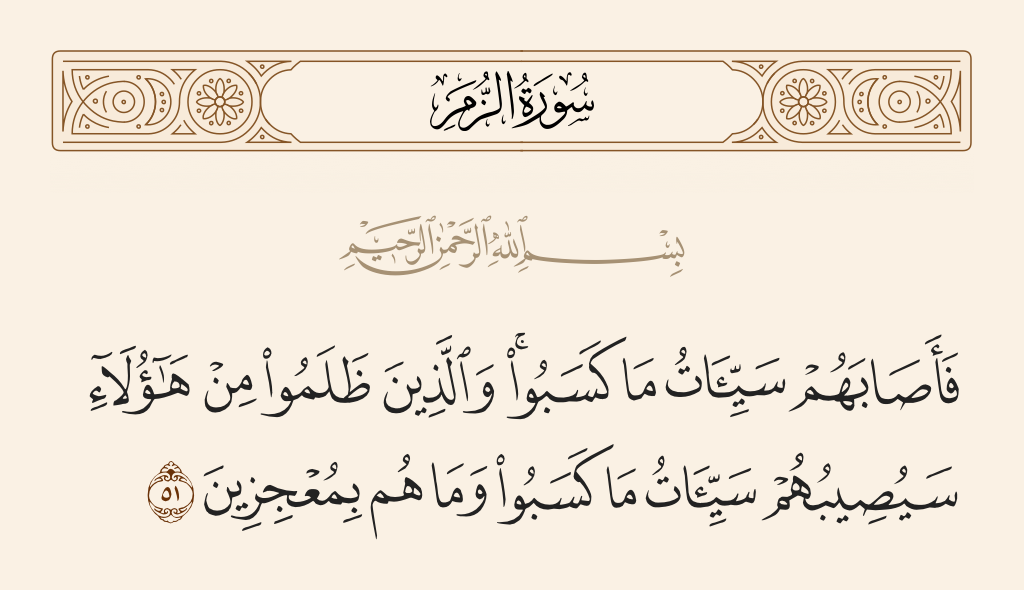 سُورَةُ الزُّمَرِ
بِسْمِ ٱللَّهِ ٱلرَّحْمَٰنِ ٱلرَّحِيمِ
فَأَصَابَهُمْ سَيِّـَٔاتُ مَا كَسَبُوا۟ ۚ وَٱلَّذِينَ ظَلَمُوا۟ مِنْ هَٰٓؤُلَآءِ
سَيُصِيبُهُمْ سَيِّـَٔاتُ مَا كَسَبُوا۟ وَمَا هُم بِمُعْجِزِينَ ٥١